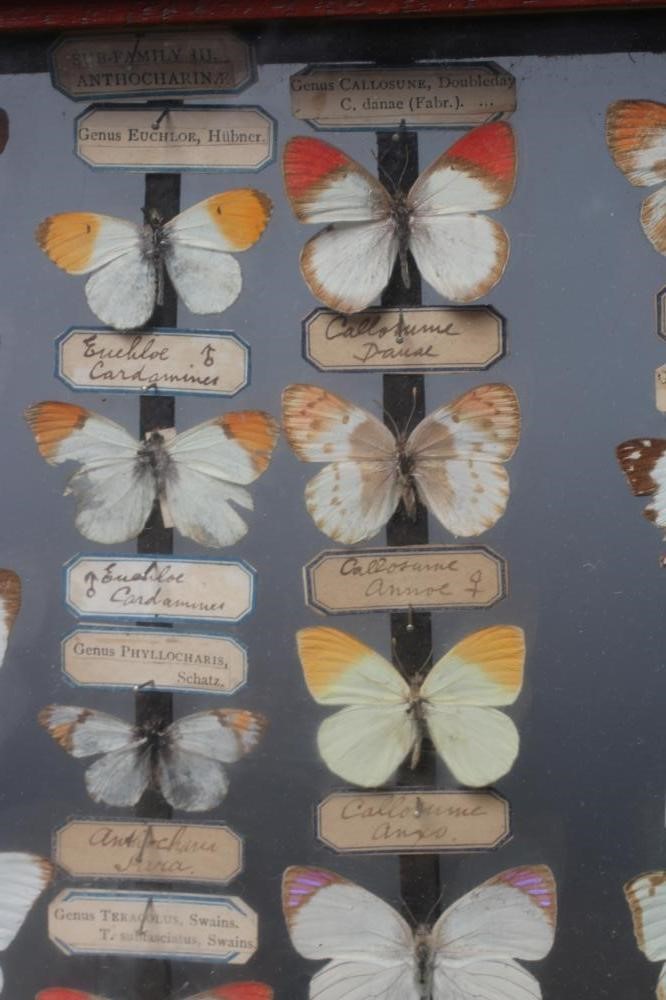 SUB-FAMILY III.
ANTHOCHARINÆ
Genus EUCHLOR, Hübner.
Euchloe ♂
Cardamines
♂ Euchloe
Cardamines
Genus PHYLLOCHARIS,
Schatz.
Anthocharis
Genus TERACOLUS, Swains.
T. subfasciatus, Swains.
Genus CALLOSUNE, Doubleday
C. danae (Fabr.). ...
Callosume
Danae
Callosume
Annoe ♀
Callosume